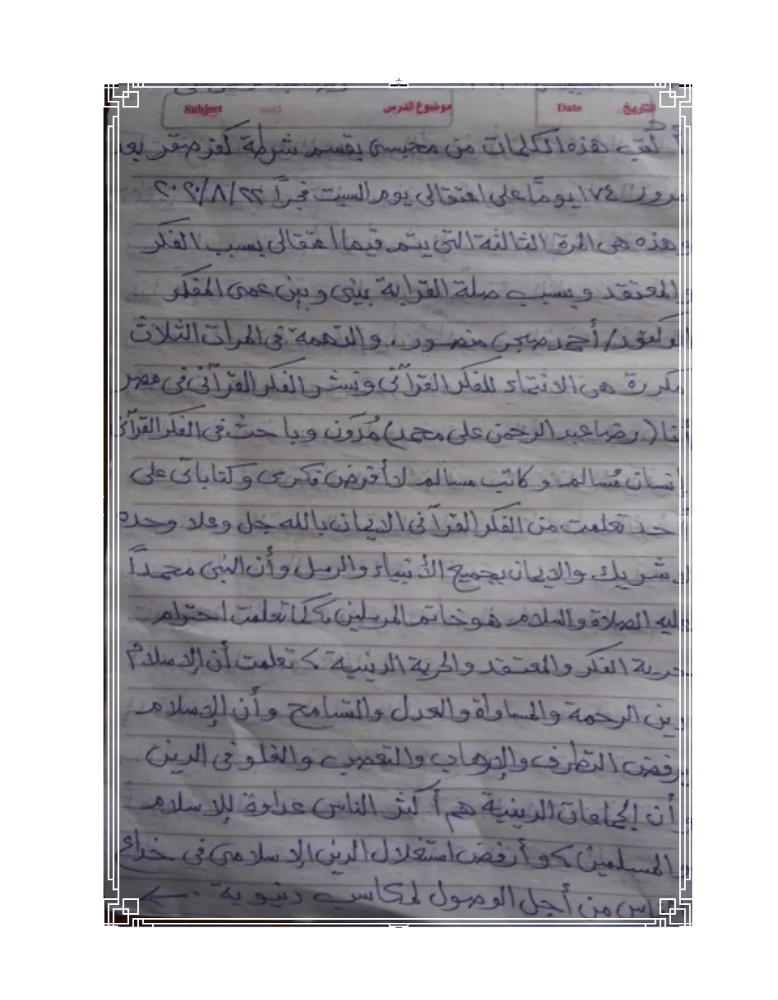 Subject موضوع الدرس Date التاريخ
أكتب هذه الكلمات من محبسى بقسم شرطة كفر صقر بعد
مرور ١٧٤ يومًا على اعتقالى يوم السبت فجرًا ٢٢/٨/٢٠٢٠
وهذه هى المرة الثالثة التى يتم فيها اعتقالى بسبب الفكر
والمعتقد وبسبب صلة القرابة بينى وبين عمى المفكر
الدكتور/ أحمد صبحى منصور، والتهمة فى المرات الثلاث
مكررة هى الانتماء للفكر القرآنى ونشر الفكر القرآنى فى مصر
أنا (رضا عبد الرحمن على محمد) مُدَوّن وباحث فى الفكر القرآنى
إنسان مُسالم وكاتب مسالم لا أفرض فكرى وكتاباتى على
أحد تعلمت من الفكر القرآنى الايمان بالله جل وعلا وحده
لا شريك، والايمان بجميع الأنبياء والرسل وأن النبى محمدًا
عليه الصلاة والسلام هو خاتم المرسلين، كما تعلمت احترام
حرية الفكر والمعتقد والحرية الدينية، تعلمت أن الإسلام
دين الرحمة والمساواة والعدل والتسامح وأن الإسلام
يرفض التطرف والإرهاب والتعصب والغلو فى الدين
وأن الجماعات الدينية هم أكثر الناس عداوة للإسلام
والمسلمين، وأرفض استغلال الدين الإسلامى فى خداع
الناس من أجل الوصول لمكاسب دنيوية. ←